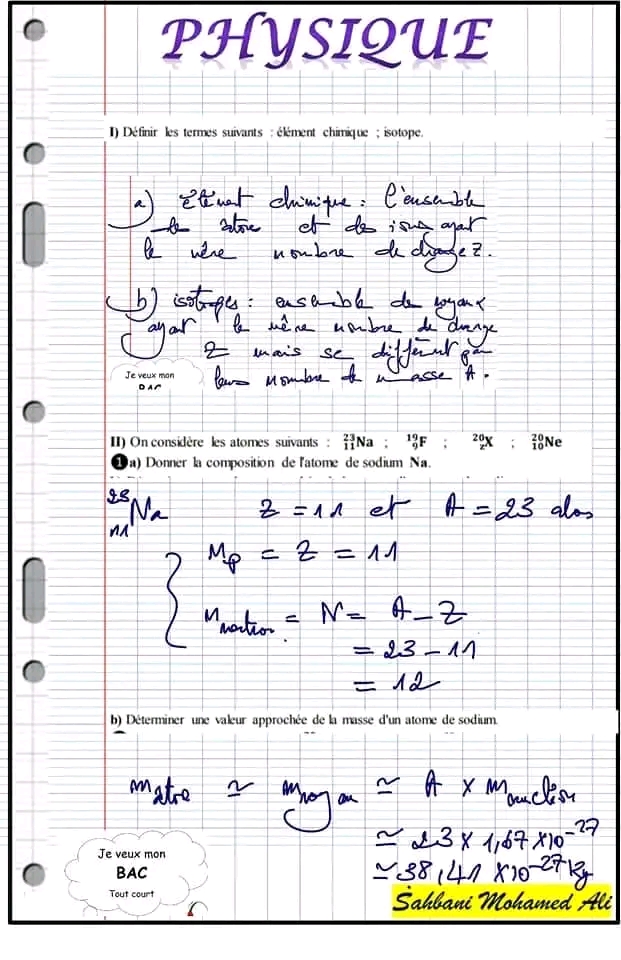 PHYSIQUE
I) Définir les termes suivants : élément chimique ; isotope.
a) élément chimique : l'ensemble
de atome et de ions ayant
le même nombre de charge Z.
b) isotopes : ensemble de noyaux
ayant le même nombre de charge
Z mais se diffèrent par
leurs nombre de masse A.
Je veux mon
BAC
II) On considère les atomes suivants : ²³₁₁Na ; ¹⁹₉F ; ²⁰zX ; ²⁰₁₀Ne
1 a) Donner la composition de l'atome de sodium Na.
²³₁₁Na Z = 11 et A = 23 alors
Mp = Z = 11
Mneutron = N = A - Z
= 23 - 11
= 12
b) Déterminer une valeur approchée de la masse d'un atome de sodium.
matome ≃ mnoyau ≃ A × mnucléon
≃ 23 × 1,67 × 10⁻²⁷
≃ 38,41 × 10⁻²⁷ Kg
Je veux mon
BAC
Tout court
Sahbani Mohamed Ali